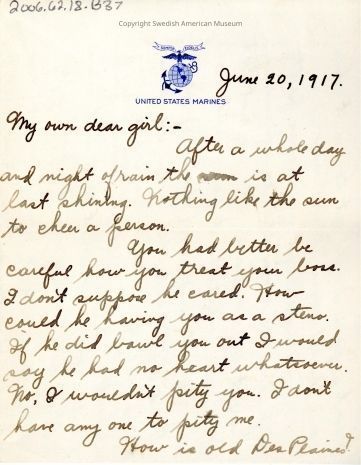 2006.62.18.B37
Copyright Swedish American Museum
SEMPER FIDELIS
UNITED STATES MARINES
June 20, 1917.
My own dear girl:-
After a whole day
and night of rain the is at
last shining. Nothing like the sun
to cheer a person.
You had better be
careful how you treat your boss.
I don't suppose he cared. How
could he having you as a steno.
If he did bawl you out I would
say he had no heart whatsoever.
No, I wouldn't pity you. I don't
have any one to pity me.
How is old Des Plaines?